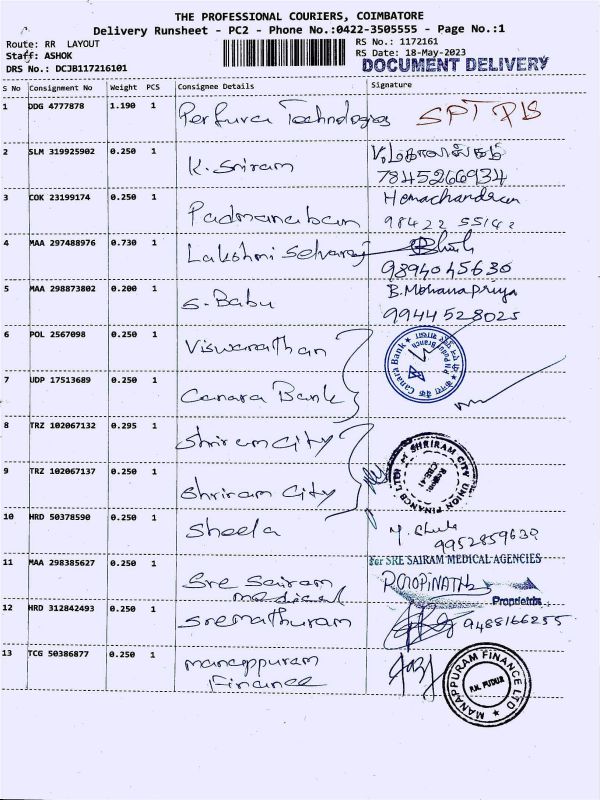 THE PROFESSIONAL COURIERS, COIMBATORE
Delivery Runsheet - PC2 - Phone No.:0422-3505555 - Page No.:1
Route: RR LAYOUT
RS No.: 1172161
Staff: ASHOK
RS Date: 18-May-2023
DRS No.: DCJB117216101
DOCUMENT DELIVERY
S No Consignment No Weight PCS Consignee Details Signature
1 DDG 4777878 1.190 1 Perfura Technologies SPT PB
2 SLM 319925902 0.250 1 K. Sriram
78452 66934
3 COK 23199174 0.250 1 Padmanaban Hemachandran
98422 55142
4 MAA 297488976 0.730 1 Lakshmi Selvaraj
9894045630
5 MAA 298873802 0.200 1 S. Babu B. Mohanapriya
9944528025
6 POL 2567098 0.250 1 Viswanathan
Canara Bank
7 UDP 17513689 0.250 1 Canara Bank
8 TRZ 102067132 0.295 1 Shriram City
SHRIRAM CITY UNION FINANCE LTD
9 TRZ 102067137 0.250 1 Shriram City
10 HRD 50378590 0.250 1 Sheela
9952859630
11 MAA 298385627 0.250 1 Sre Sairam medical
for SRE SAIRAM MEDICAL AGENCIES
R. GOPINATH
Proprietrix
12 HRD 312842493 0.250 1 Sremathuram 9488166255
13 TCG 50386877 0.250 1 manappuram Finance
MANAPPURAM FINANCE LTD
R.K. PUDUR